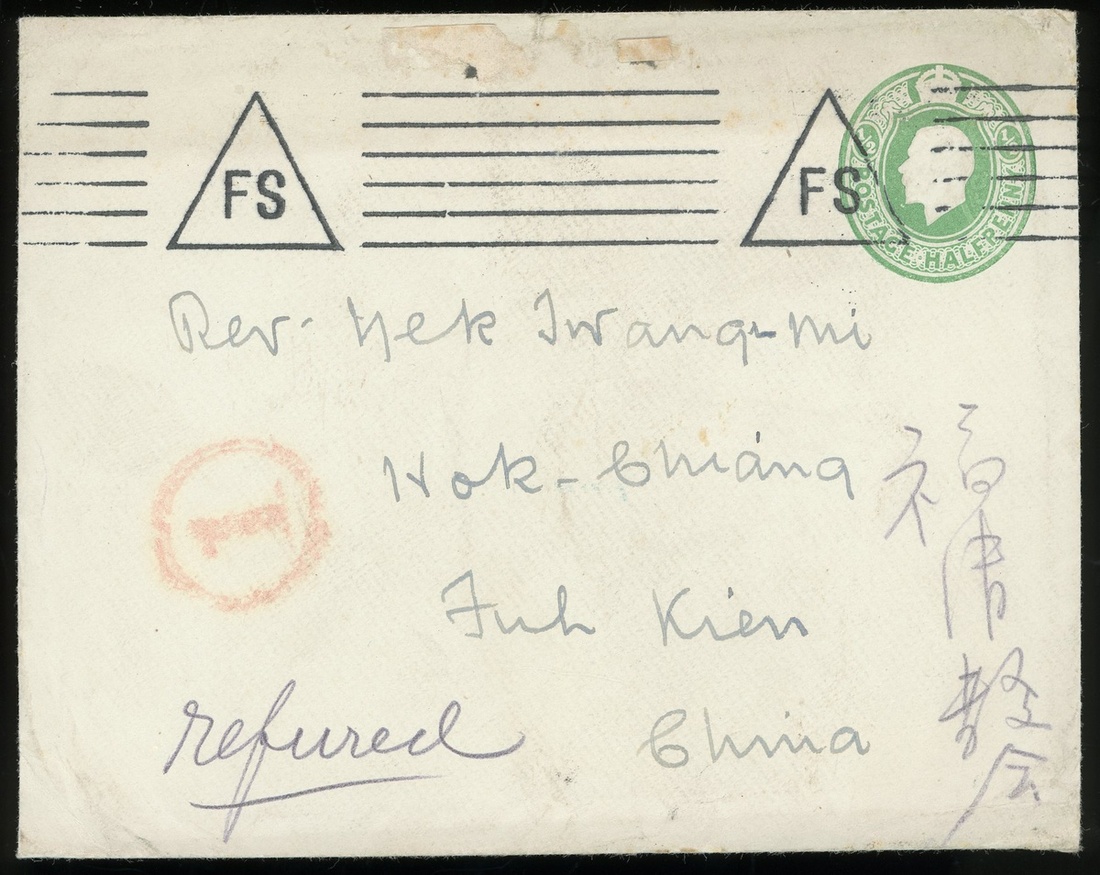 FS FS
½ ½
POSTAGE·HALFPENNY
Rev. Yek Twang-mi
Hok-Chiáng
Fuh Kien
China
refured
1
福清教会